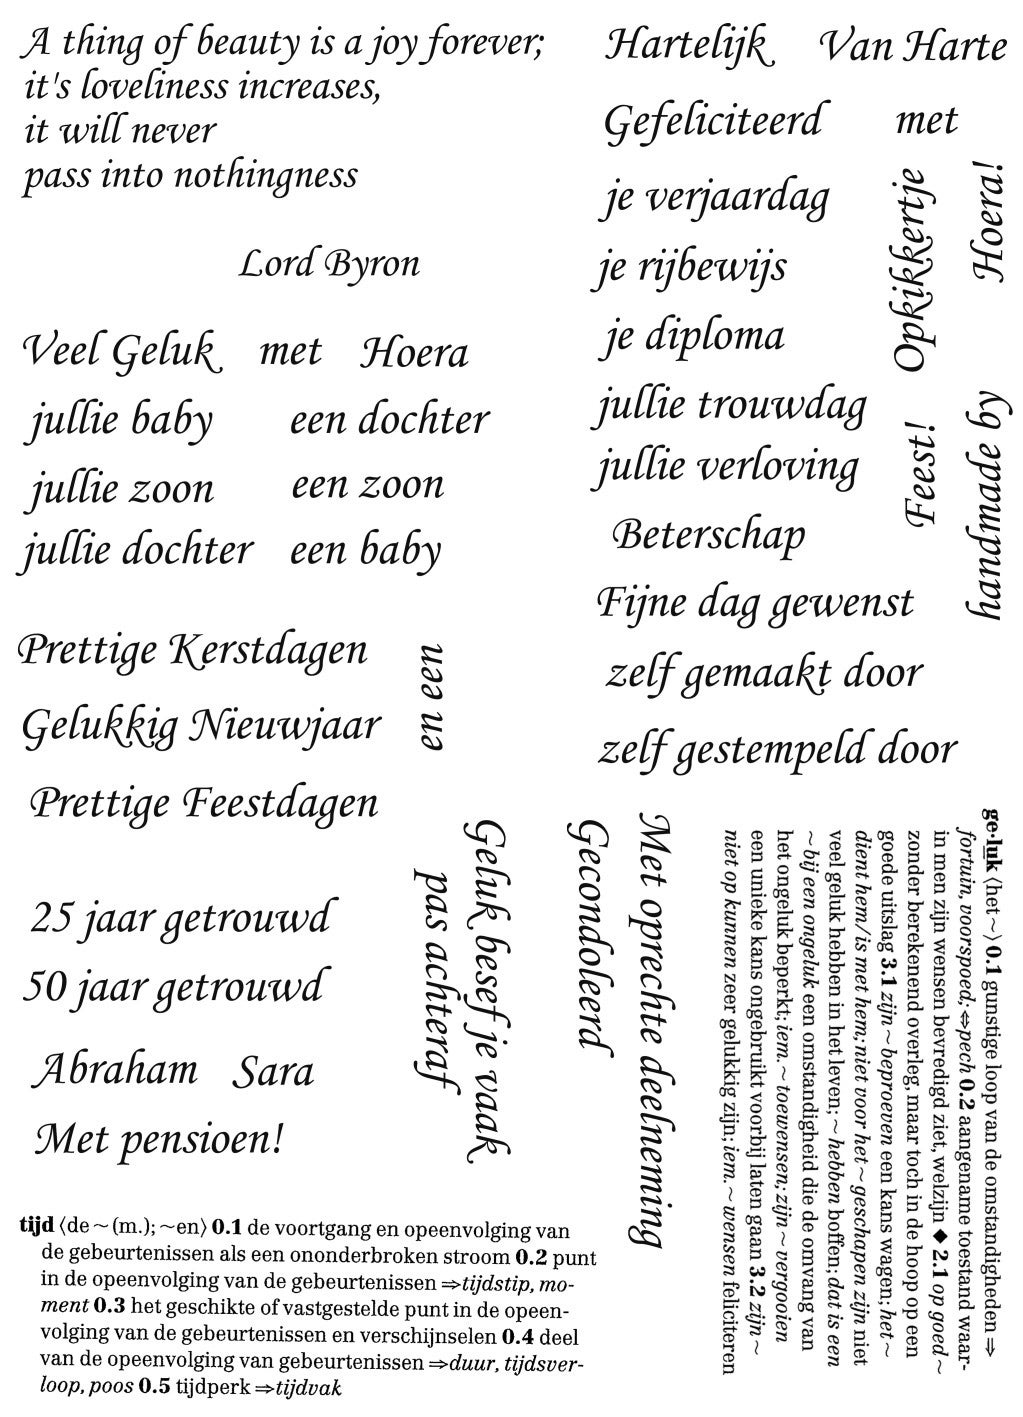 A thing of beauty is a joy forever;
it's loveliness increases,
it will never
pass into nothingness
Lord Byron
Veel Geluk met Hoera
jullie baby een dochter
jullie zoon een zoon
jullie dochter een baby
Prettige Kerstdagen
Gelukkig Nieuwjaar
Prettige Feestdagen
en een
25 jaar getrouwd
50 jaar getrouwd
Abraham Sara
Met pensioen!
Hartelijk Van Harte
Gefeliciteerd met
je verjaardag
je rijbewijs
je diploma
jullie trouwdag
jullie verloving
Beterschap
Fijne dag gewenst
zelf gemaakt door
zelf gestempeld door
Opkikkertje
Hoera!
Feest!
handmade by
Geluk besef je vaak
pas achteraf
Gecondoleerd
Met oprechte deelneming
ge·luk ⟨het~⟩ 0.1 gunstige loop van de omstandigheden ⇒
fortuin, voorspoed; ⇔pech 0.2 aangename toestand waar-
in men zijn wensen bevredigd ziet, welzijn ◆ 2.1 op goed ~
zonder berekenend overleg, maar toch in de hoop op een
goede uitslag 3.1 zijn ~ beproeven een kans wagen; het ~
dient hem/is met hem; niet voor het ~ geschapen zijn niet
veel geluk hebben in het leven; ~ hebben boffen; dat is een
~ bij een ongeluk een omstandigheid die de omvang van
het ongeluk beperkt; iem. ~ toewensen; zijn ~ vergooien
een unieke kans ongebruikt voorbij laten gaan 3.2 zijn ~
niet op kunnen zeer gelukkig zijn; iem. ~ wensen feliciteren
tijd ⟨de~(m.); ~en⟩ 0.1 de voortgang en opeenvolging van
de gebeurtenissen als een ononderbroken stroom 0.2 punt
in de opeenvolging van de gebeurtenissen ⇒tijdstip, mo-
ment 0.3 het geschikte of vastgestelde punt in de opeen-
volging van de gebeurtenissen en verschijnselen 0.4 deel
van de opeenvolging van gebeurtenissen ⇒duur, tijdsver-
loop, poos 0.5 tijdperk ⇒tijdvak